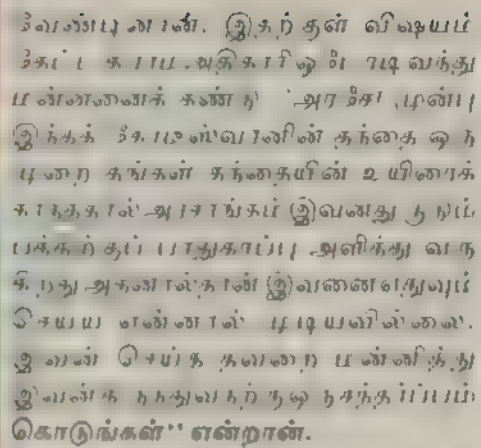 வேண்டினான். இதற்குள் விஷயம்
கேட்ட கிராம அதிகாரி ஓடோடி வந்து
மன்னனைக் கண்டு "அரசே, முன்பு
இந்தக் கோடீஸ்வரனின் தந்தை ஒரு
முறை தங்கள் தந்தையின் உயிரைக்
காத்ததால் அரசாங்கம் இவனது குடும்
பத்திற்குப் பாதுகாப்பு அளித்து வரு
கிறது அதனால்தான் இவனை எதுவும்
செய்ய என்னால் முடியவில்லை.
இவன் செய்த தவறை மன்னித்து
இவன் திருந்துவதற்கு ஒரு சந்தர்ப்பம்
கொடுங்கள்" என்றான்.